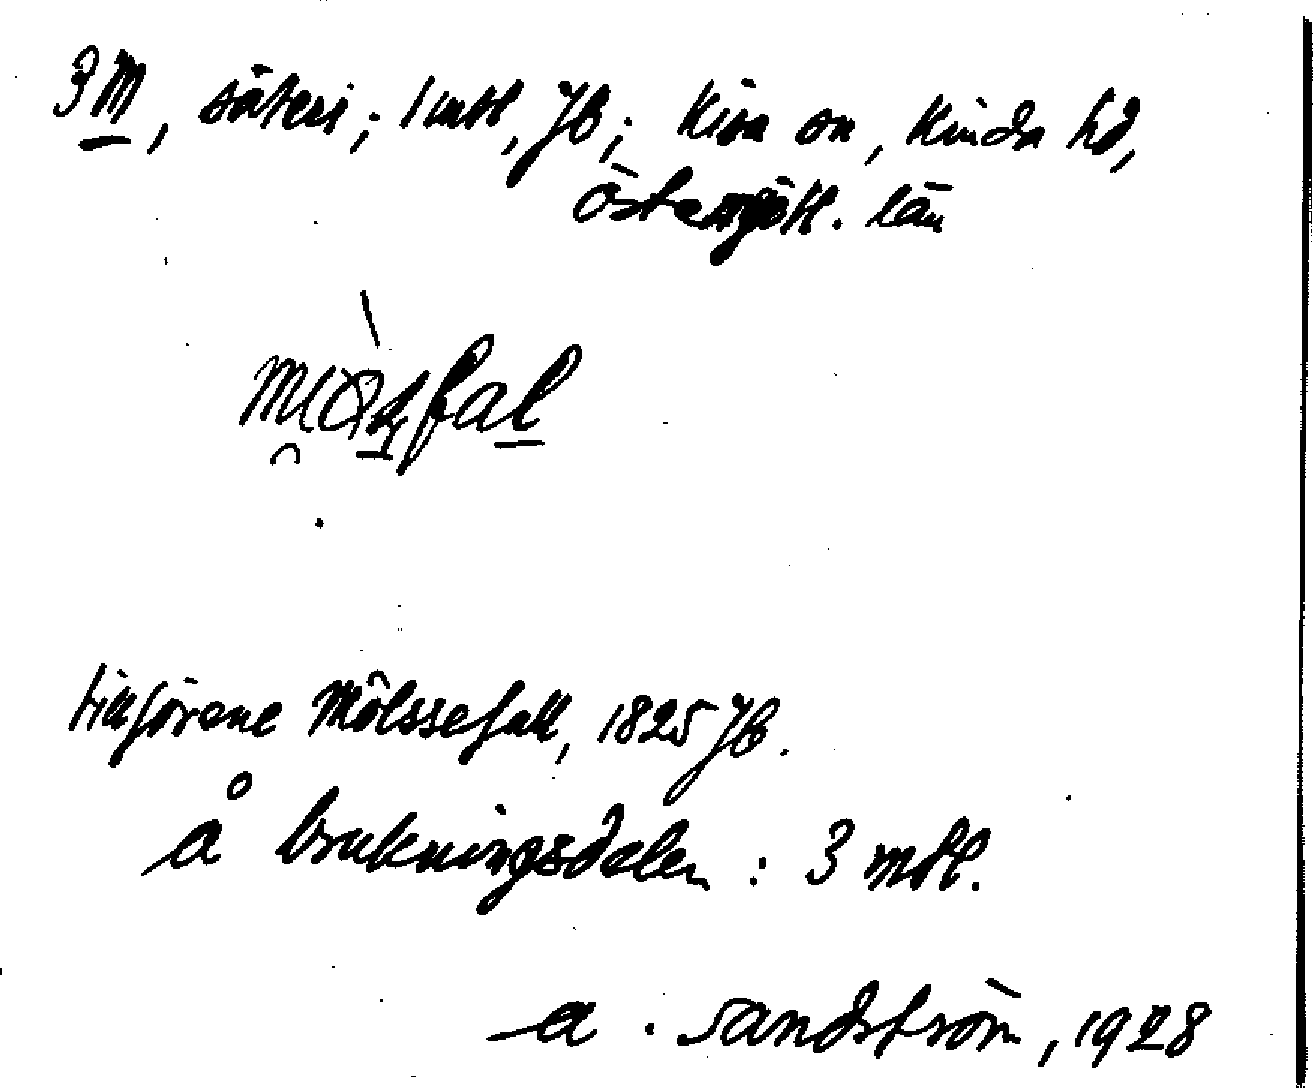 3 M, säteri; 1 mtl, Jb; Kisa sn, Kinda hd,
Östergötl. län
tillförene Mölssefall, 1825 Jb.
å brukningsdelen: 3 mtl.
A. Sandström, 1928